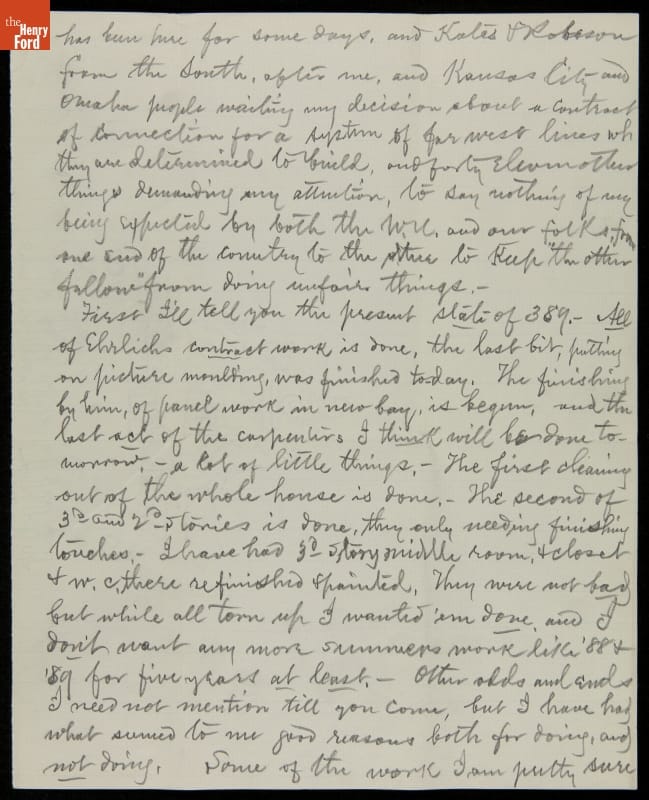 the
Henry
Ford
has been here for some days, and Kates & Robeson
from the South, after me, and Kansas City and
Omaha people waiting my decision about a contract
of connection for a system of far west lines wh
they are determined to build, and forty eleven other
things demanding my attention, to say nothing of my
being expected by both the W.U. and our folks, from
one end of the country to the other to keep "the other
fellow" from doing unfair things.—
First I'll tell you the present state of 389.— All
of Ehrlichs contract work is done, the last bit, putting
on picture moulding, was finished today. The finishing
by him, of panel work in new bay, is begun, and the
last act of the carpenters I think will be done to-
morrow,— a lot of little things.— The first cleaning
out of the whole house is done.— The second of
3rd and 2nd stories is done, they only needing finishing
touches.— I have had 3d story middle room, & closet
& w.c, there refinished & painted. They were not bad
but while all torn up I wanted 'em done, and I
don't want any more summers work like '88 &
'89 for five years at least.— Other odds and ends
I need not mention till you come, but I have had
what seemed to me good reasons both for doing, and
not doing. Some of the work I am putty sure